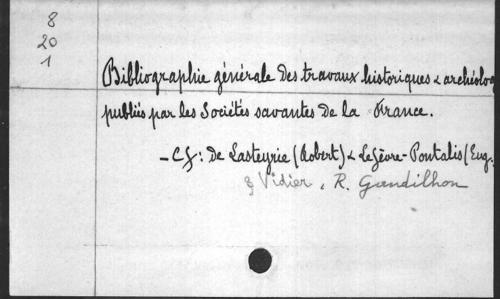 8
20
1
Bibliographie générale des travaux historiques & archéolog
publiés par les Sociétés savantes de la France.
- Cf: De Lasteyrie (Robert) & Lefèvre-Pontalis (Eug.
& Vidier, R. Gandilhon